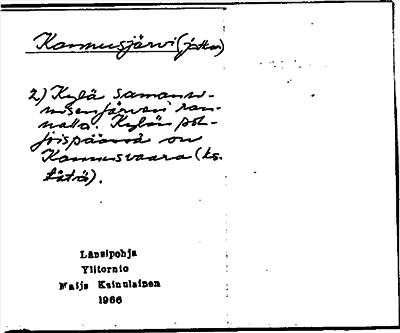 Kannusjärvi (jatkoa)
2) Kylä samanni-
misen järven ran-
nalla. Kylän poh-
joispäässä on
Kannusvaara (ks.
tätä).
Länsipohja
Ylitornio
Maija Kainulainen
1966